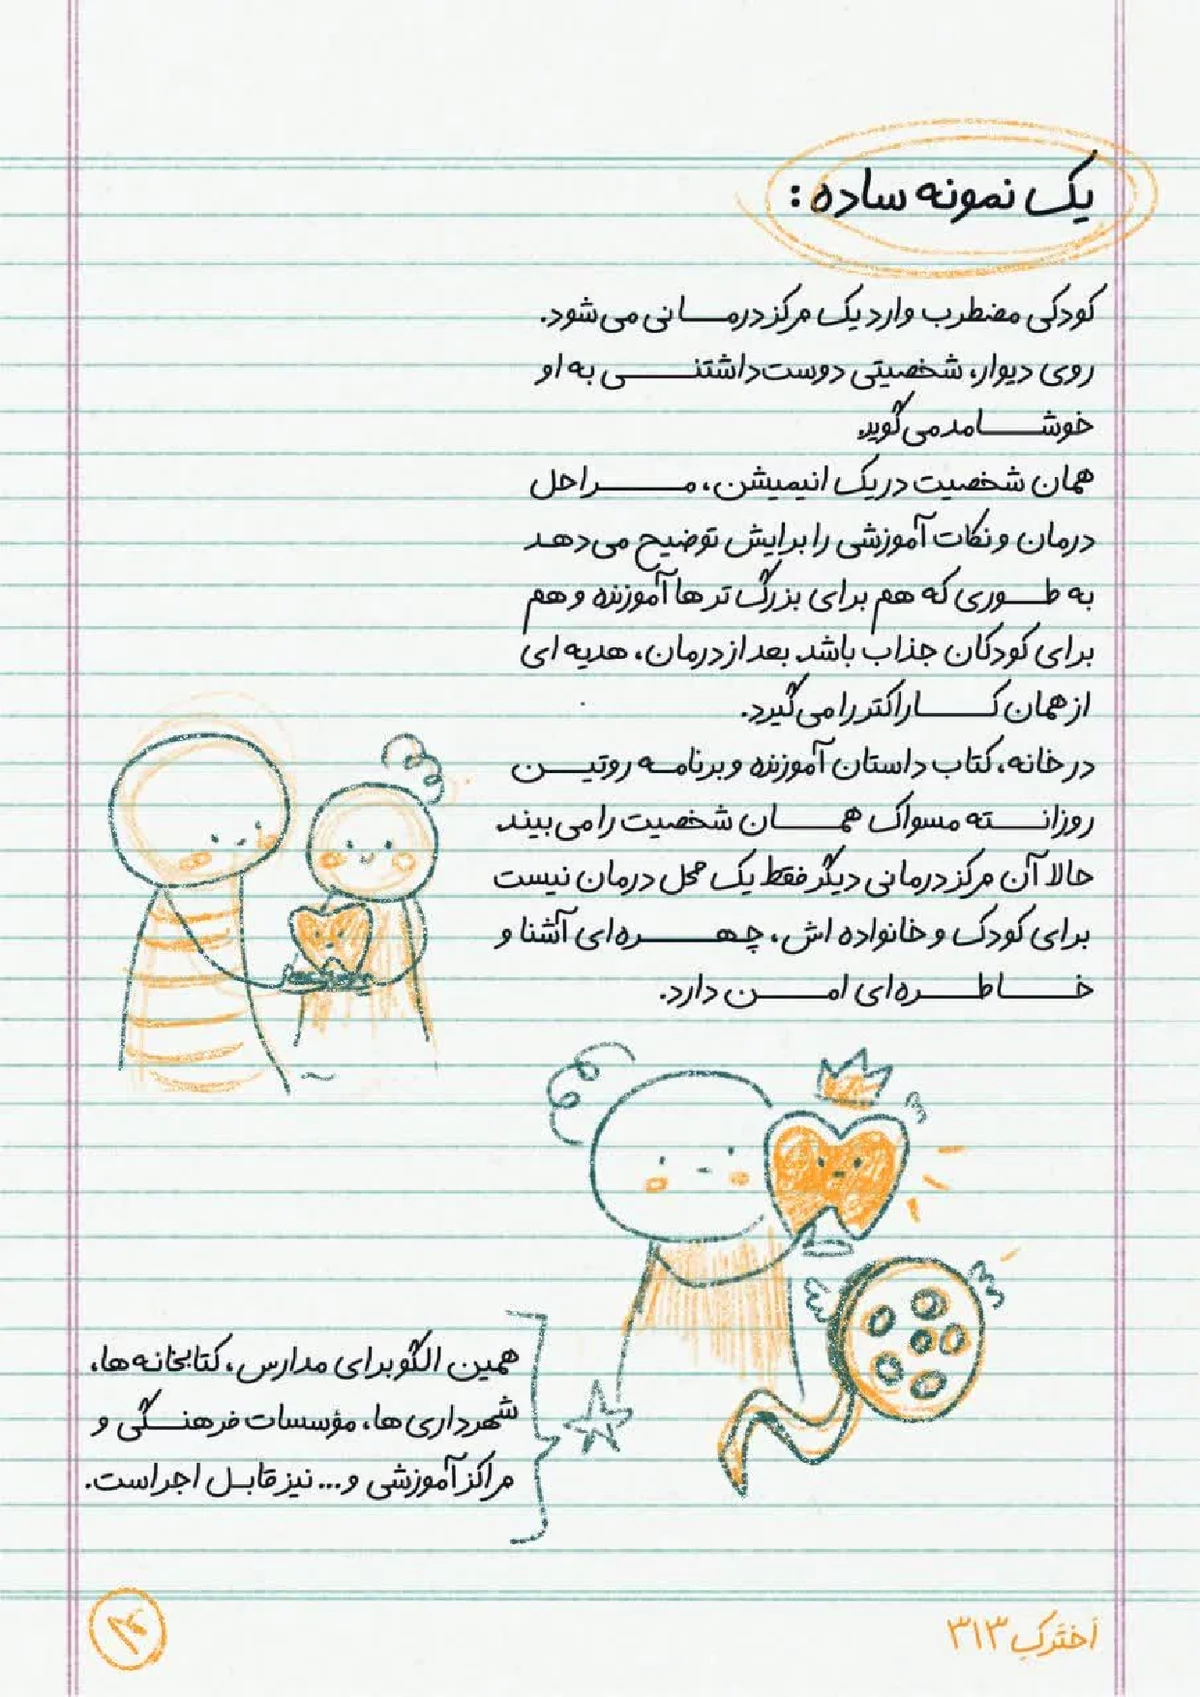 یک نمونه ساده:
کودکی مضطرب وارد یک مرکز درمانی می‌شود.
روی دیوار، شخصیتی دوست‌داشتنی به او
خوشامد می‌گوید.
همان شخصیت در یک انیمیشن، مراحل
درمان و نکات آموزشی را برایش توضیح می‌دهد
به طوری که هم برای بزرگ تر ها آموزنده و هم
برای کودکان جذاب باشد. بعد از درمان، هدیه ای
از همان کاراکتر را می‌گیرد.
در خانه، کتاب داستان آموزنده و برنامه روتین
روزانه مسواک همان شخصیت را می‌بیند.
حالا آن مرکز درمانی دیگر فقط یک محل درمان نیست
برای کودک و خانواده اش، چهره‌ای آشنا و
خاطره‌ای امن دارد.
همین الگو برای مدارس، کتابخانه ها،
شهرداری ها، مؤسسات فرهنگی و
مراکز آموزشی و... نیز قابل اجراست.
اَختَرکِ ۳۱۳